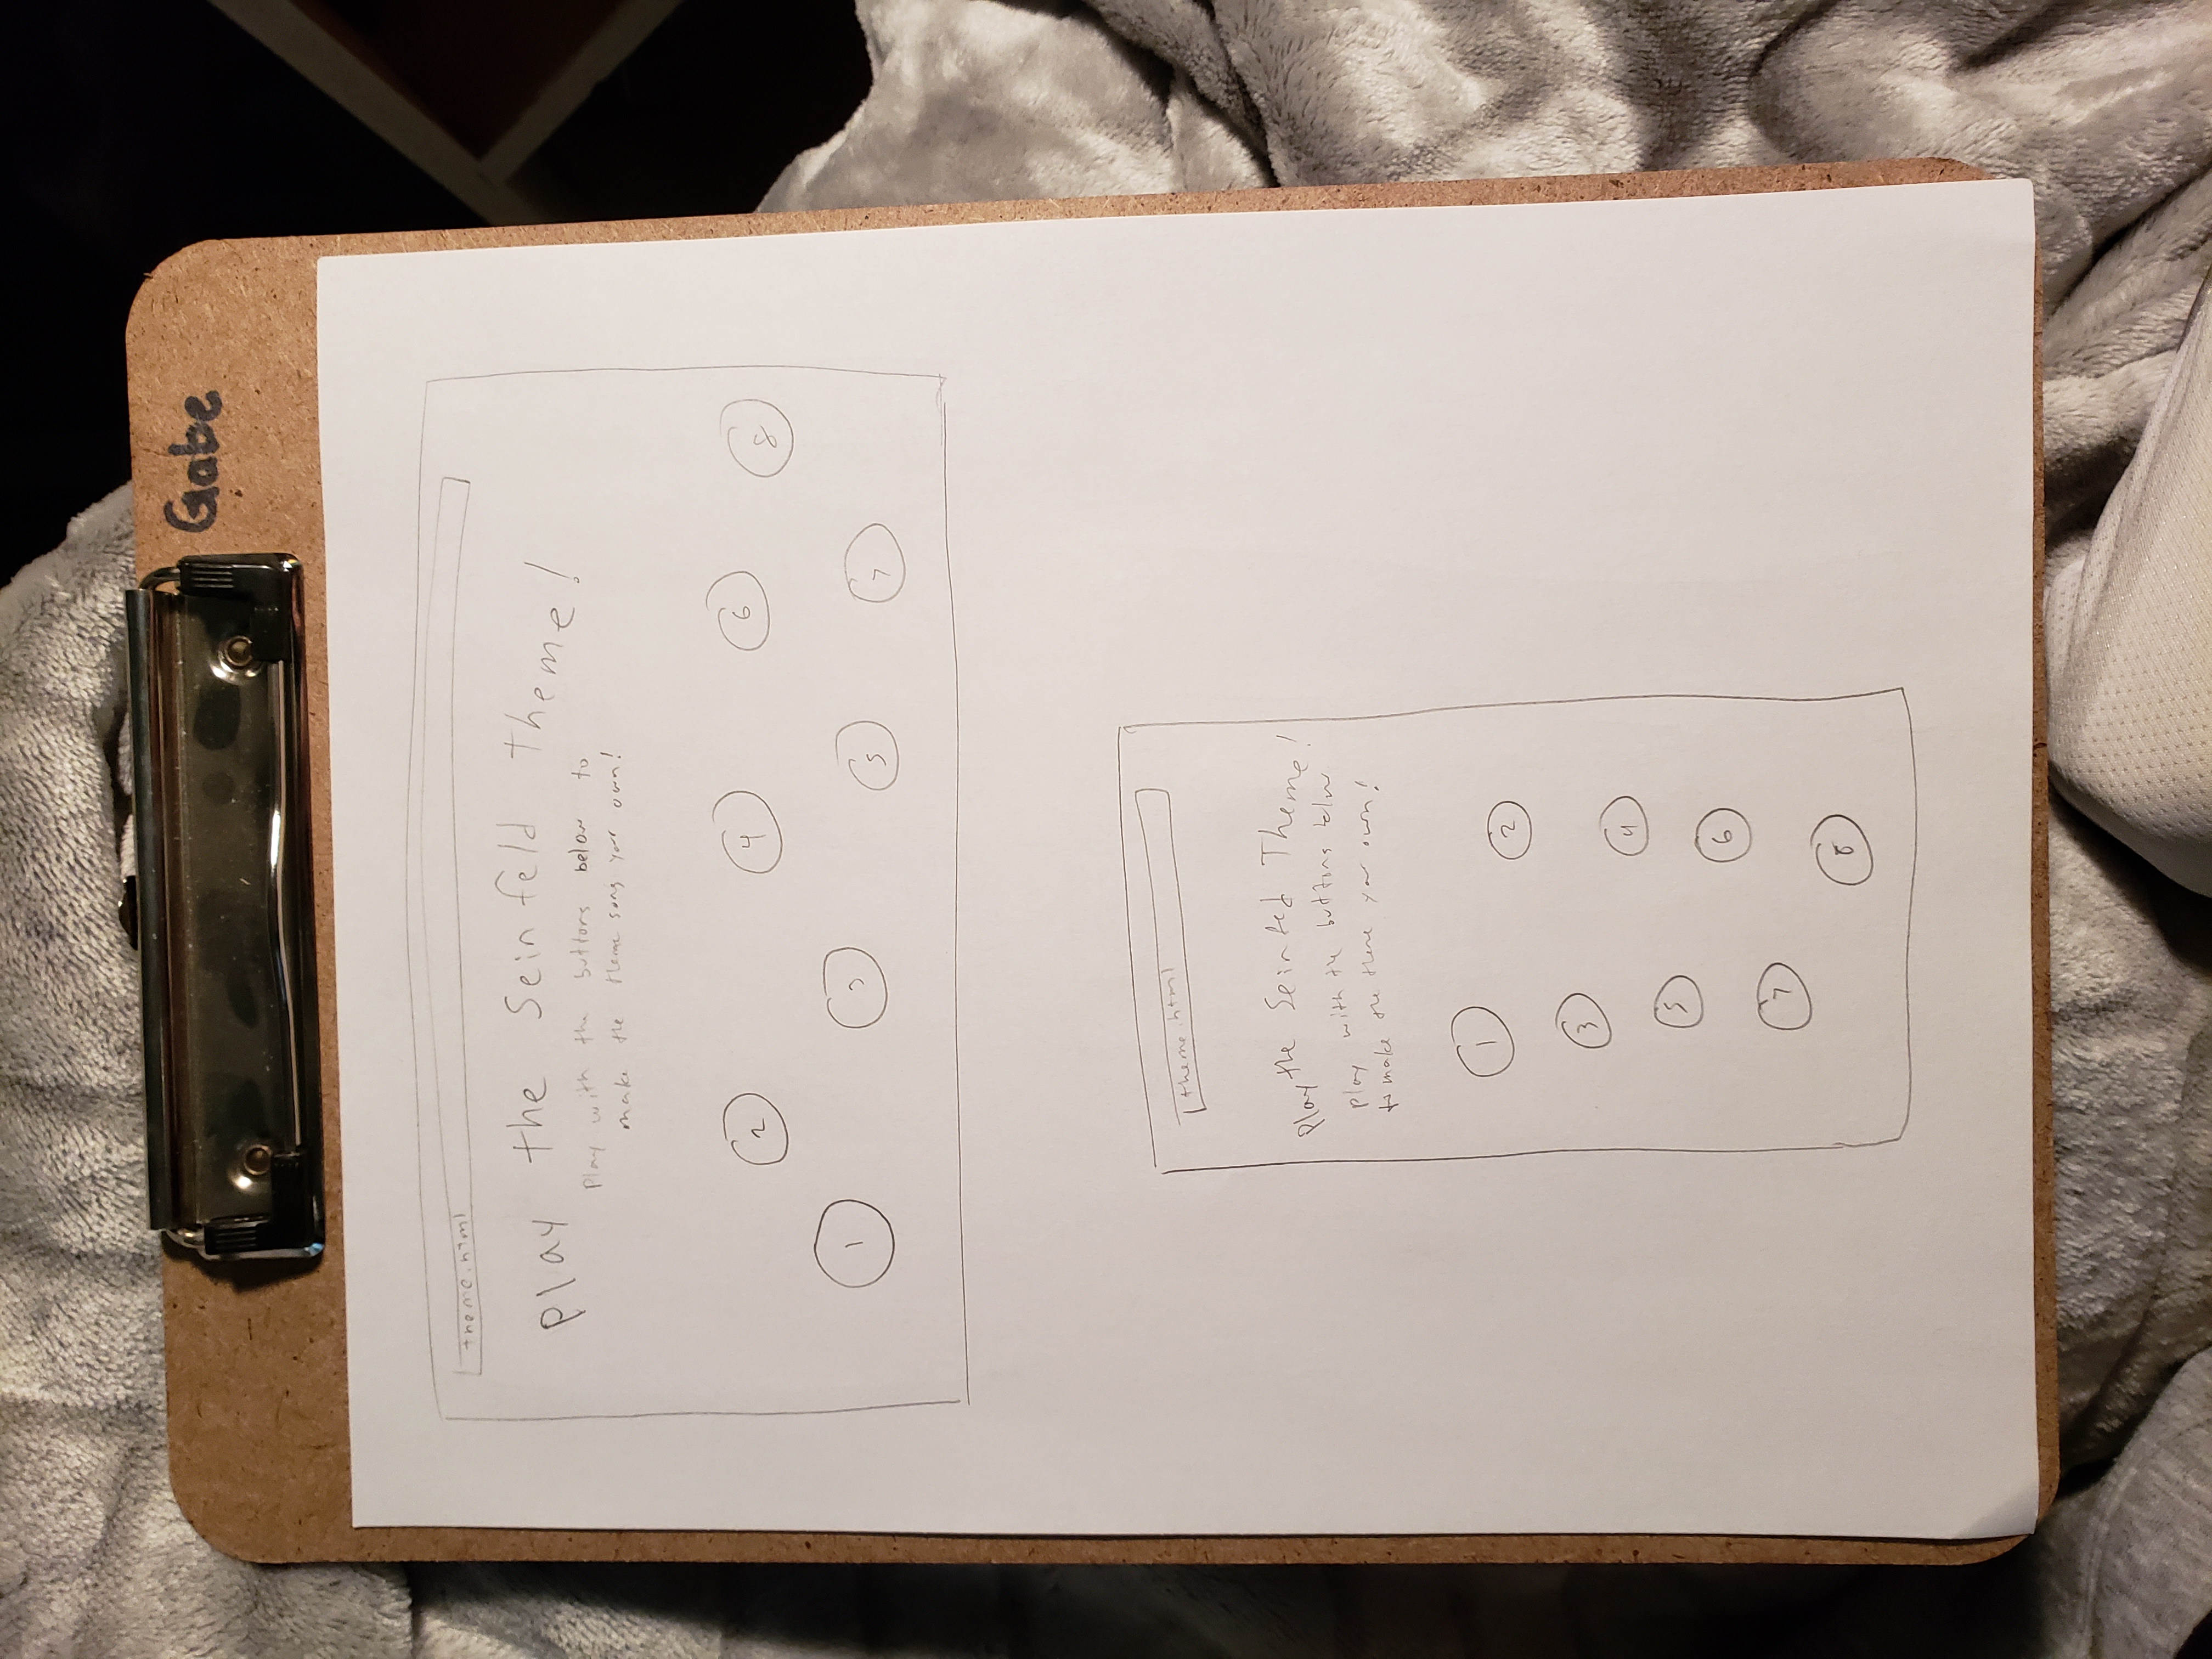 Gabe
theme.html
Play the Seinfeld Theme!
Play with the buttons below to
make the theme song your own!
2 4 6 8
1 3 5 7
theme.html
Play the Seinfeld Theme!
Play with the buttons below
to make the theme your own!
1
2
3
4
5
6
7
8